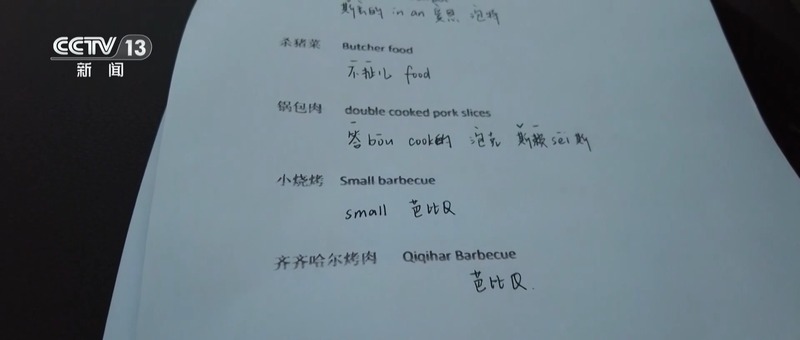 CCTV 13
新闻
斯长的 in an 爱恩 泡特
杀猪菜 Butcher food
不扯儿 food
锅包肉 double cooked pork slices
答bōu cook的 泡克 斯赖sei斯
小烧烤 Small barbecue
small 芭比Q
齐齐哈尔烤肉 Qiqihar Barbecue
芭比Q.